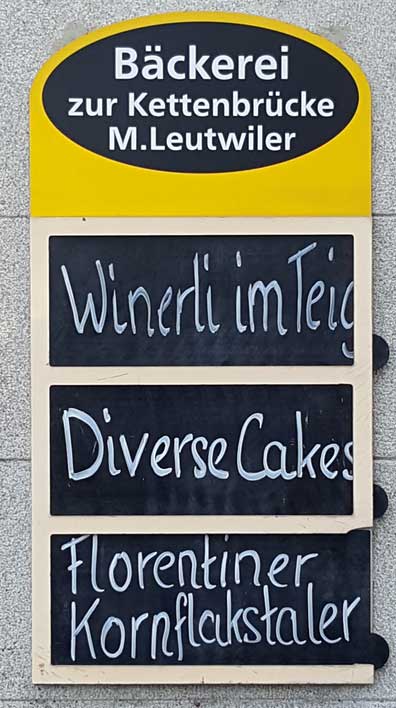 Bäckerei
zur Kettenbrücke
M.Leutwiler
Winerli im Teig
Diverse Cakes
Florentiner
Kornflakstaler